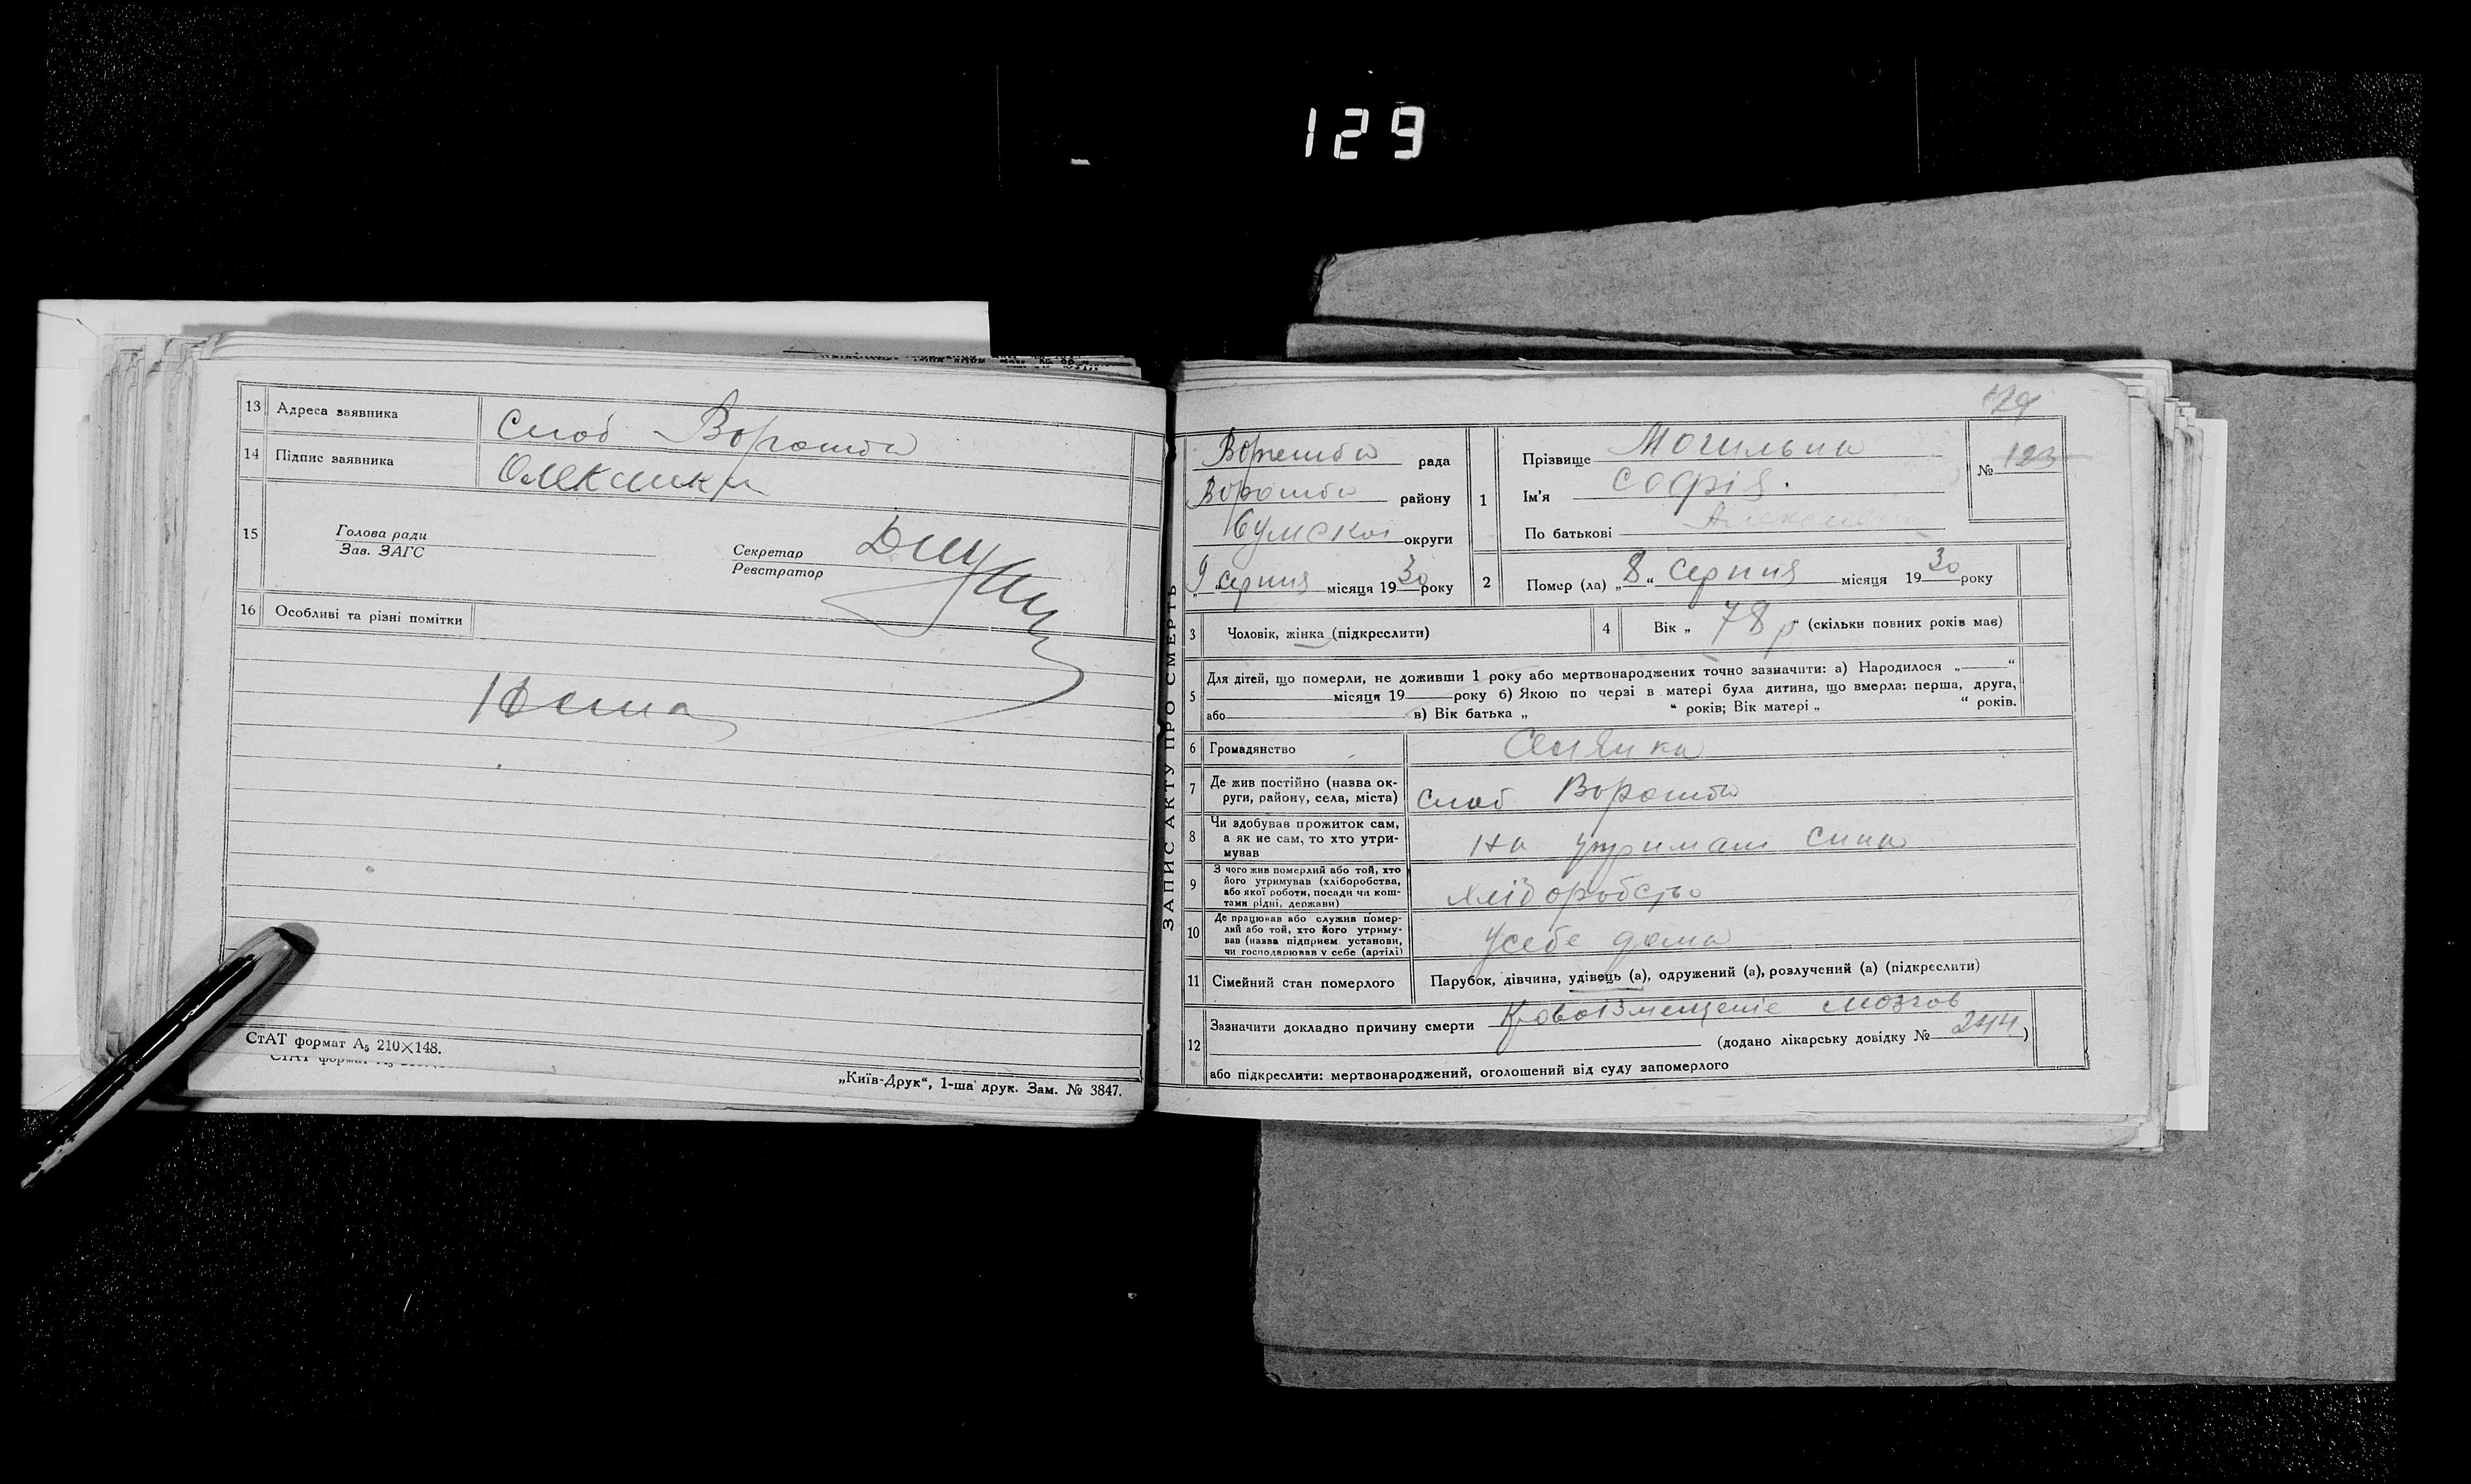 129
13 Адреса заявника Слоб Ворожба
14 Підпис заявника
15 Голова ради
Зав. ЗАГС
Секретар
Реєстратор
16 Особливі та різні помітки
Нема
СтАТ формат А₅ 210×148.
„Київ-Друк“, 1-ша друк. Зам. № 3847.
ЗАПИС АКТУ ПРО СМЕРТЬ
129
Ворожба рада
Ворожба району
Сумскої округи
„9 серпня місяця 1930 року
1 Прізвище Могильна
Ім'я Софія.
По батькові
№ 123
2 Помер (ла) „8“ Серпня місяця 1930 року
3 Чоловік, жінка (підкреслити)
4 Вік „78 р“ (скільки повних років має)
5 Для дітей, що померли, не доживши 1 року або мертвонароджених точно зазначити: а) Народилося „ “
місяця 19 року б) Якою по черзі в матері була дитина, що вмерла: перша, друга,
або в) Вік батька „ “ років; Вік матері „ “ років.
6 Громадянство Селянка
7 Де жив постійно (назва ок-
руги, району, села, міста) Слоб Ворожба
8 Чи здобував прожиток сам,
а як не сам, то хто утри-
мував На утримані сина
9 З чого жив померлий або той, хто
його утримував (хліборобства,
або якої роботи, посади чи кош-
тами рідні, держави) хліборобство
10 Де працював або служив помер-
лий або той, хто його утриму-
вав (назва підприєм. установи,
чи господарював у себе (артілі) Усебе дома
11 Сімейний стан померлого Парубок, дівчина, удівець (а), одружений (а), розлучений (а) (підкреслити)
12 Зазначити докладно причину смерти мозгов
(додано лікарську довідку № 244)
або підкреслити: мертвонароджений, оголошений від суду запомерлого